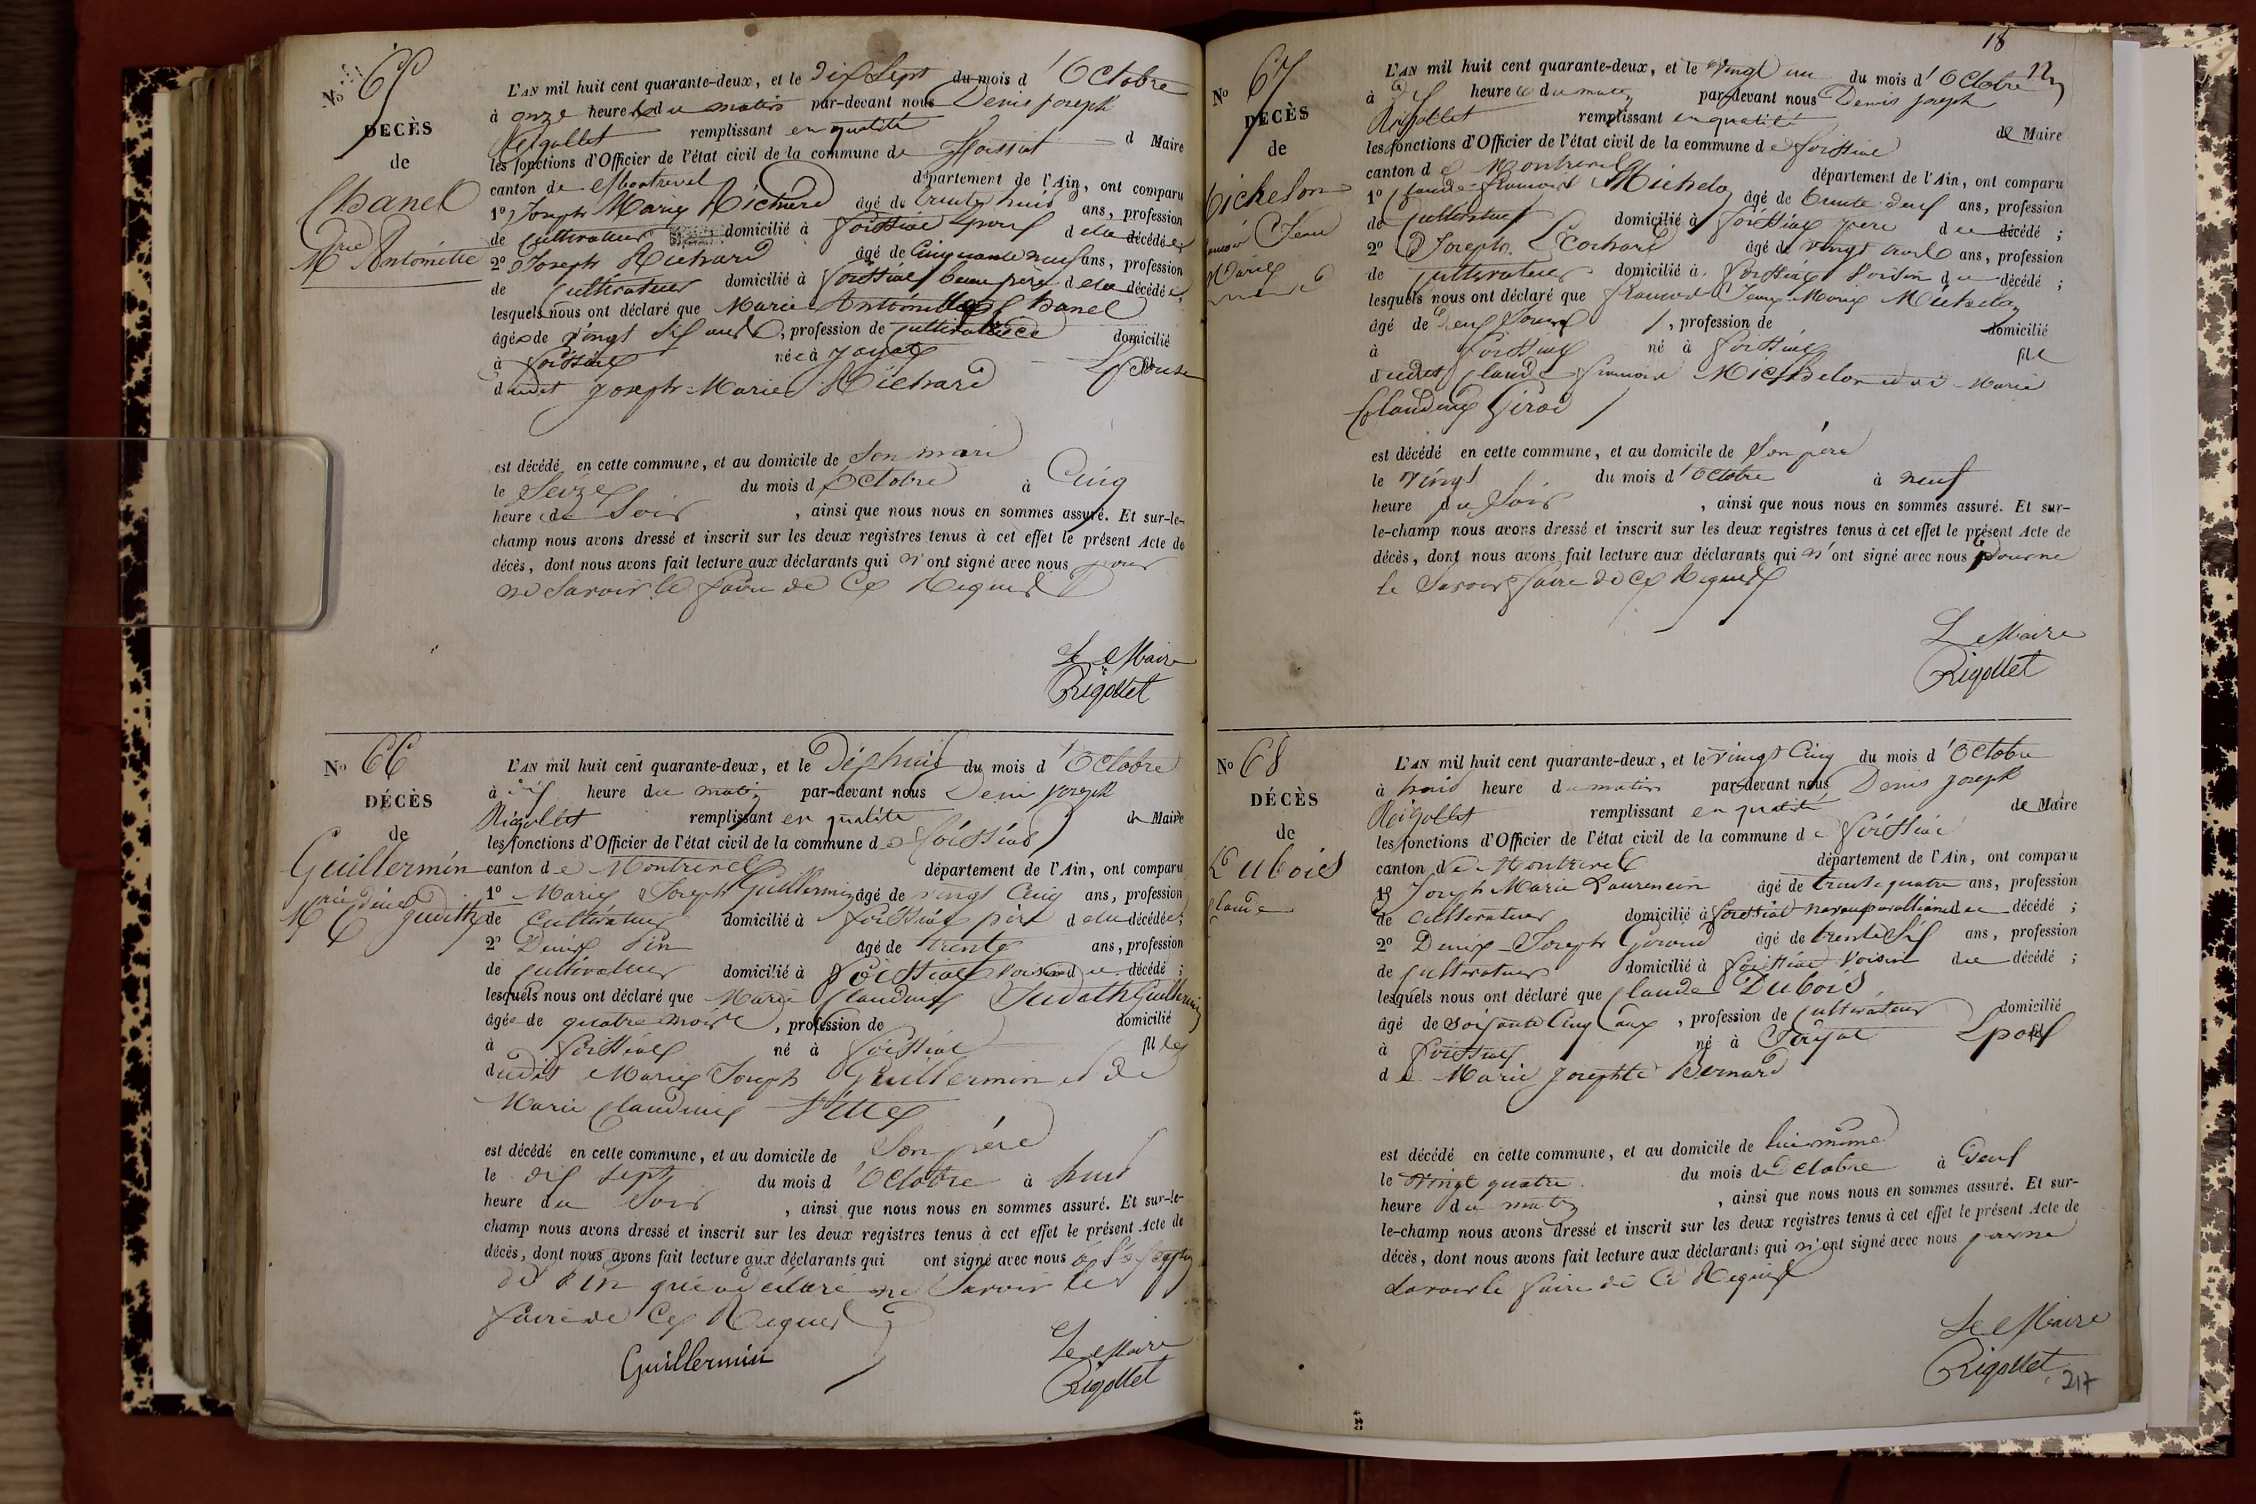 No 65
DÉCÈS
de
Chanel
Mrie Antoinette
L'AN mil huit cent quarante-deux, et le dix Sept du mois d'Octobre
à onze heures du matin par-devant nous Denis Joseph
Rigollet remplissant en qualité de Maire
les fonctions d'Officier de l'état civil de la commune de Foissiat
canton de Montrevel département de l'Ain, ont comparu
1o Joseph Marie Richard âgé de trente huit ans, profession
de cultivateur domicilié à Foissiat Epoux de la décédée
2o Joseph Richard âgé de Cinquante neuf ans, profession
de cultivateur domicilié à Foissiat beau père de la décédée,
lesquels nous ont déclaré que Marie Antoinette Chanel
âgée de vingt six ans, profession de cultivatrice domicilié
à Foissiat née à Jayat Epouse
dudit Joseph Marie Richard
est décédé en cette commune, et au domicile de Son mari
le Seize du mois d'Octobre à Cinq
heure du Soir, ainsi que nous nous en sommes assuré. Et sur-le-
champ nous avons dressé et inscrit sur les deux registres tenus à cet effet le présent Acte de
décès, dont nous avons fait lecture aux déclarants qui n'ont signé avec nous pour
ne Savoir le faire de Ce Requis
Le Maire
Rigollet
No 66
DÉCÈS
de
Guillermin
Mrie Cdine Judith
L'AN mil huit cent quarante-deux, et le Dix huit du mois d'Octobre
à dix heure du matin par-devant nous Denis Joseph
Rigollet remplissant en qualité de Maire
les fonctions d'Officier de l'état civil de la commune de Foissiat
canton de Montrevel département de l'Ain, ont comparu
1o Marie Joseph Guillermin âgé de vingt Cinq ans, profession
de Cultivateur domicilié à Foissiat père de la décédée;
2o Denis Pin âgé de trente ans, profession
de cultivateur domicilié à Foissiat voisin du décédé;
lesquels nous ont déclaré que Marie Claudine Judith Guillermin
âgée de quatre mois, profession de domicilié
à Foissiat né à Foissiat fille
dudit Marie Joseph Guillermin et de
Marie Claudine
est décédé en cette commune, et au domicile de Son père
le dix sept du mois d'Octobre à huit
heure du Soir, ainsi que nous nous en sommes assuré. Et sur-le-
champ nous avons dressé et inscrit sur les deux registres tenus à cet effet le présent Acte de
décès, dont nous avons fait lecture aux déclarants qui ont signé avec nous
Pin qui a déclaré ne Savoir le
faire de Ce Requis
Guillermin
Le Maire
Rigollet
18
No 67
DÉCÈS
de
Michelon
Jean
Marie
L'AN mil huit cent quarante-deux, et le vingt un du mois d'Octobre
à dix heure du matin par-devant nous Denis Joseph
Rigollet remplissant en qualité de Maire
les fonctions d'Officier de l'état civil de la commune de Foissiat
canton de Montrevel département de l'Ain, ont comparu
1o Claude François Michelon âgé de trente deux ans, profession
de cultivateur domicilié à Foissiat père du décédé;
2o Joseph Cochard âgé de vingt ans, profession
de cultivateur domicilié à Foissiat voisin du décédé;
lesquels nous ont déclaré que François Jean Marie Michelon
âgé de jours, profession de domicilié
à Foissiat né à Foissiat fils
dudit Claude François Michelon et de Marie
Claudine Girod
est décédé en cette commune, et au domicile de Son père
le vingt du mois d'Octobre à neuf
heure du Soir, ainsi que nous nous en sommes assuré. Et sur-
le-champ nous avons dressé et inscrit sur les deux registres tenus à cet effet le présent Acte de
décès, dont nous avons fait lecture aux déclarants qui n'ont signé avec nous pour ne
le Savoir faire de Ce Requis
Le Maire
Rigollet
No 68
DÉCÈS
de
Dubois
Claude
L'AN mil huit cent quarante-deux, et le vingt Cinq du mois d'Octobre
à huit heure du matin par-devant nous Denis Joseph
Rigollet remplissant en qualité de Maire
les fonctions d'Officier de l'état civil de la commune de Foissiat
canton de Montrevel département de l'Ain, ont comparu
1o Joseph Marie Laurencin âgé de trente quatre ans, profession
de cultivateur domicilié à Foissiat neveu par alliance du décédé;
2o Denis Joseph Giroud âgé de trente Six ans, profession
de cultivateur domicilié à Foissiat Voisin du décédé;
lesquels nous ont déclaré que Claude Dubois
âgé de Soixante Cinq ans, profession de cultivateur domicilié
à Foissiat né à Jayat Epoux
de Marie Josephte Bernard
est décédé en cette commune, et au domicile de lui même
le vingt quatre du mois d'Octobre à neuf
heure du matin, ainsi que nous nous en sommes assuré. Et sur-
le-champ nous avons dressé et inscrit sur les deux registres tenus à cet effet le présent Acte de
décès, dont nous avons fait lecture aux déclarants qui n'ont signé avec nous pour ne
Savoir le faire de Ce Requis
Le Maire
Rigollet
217